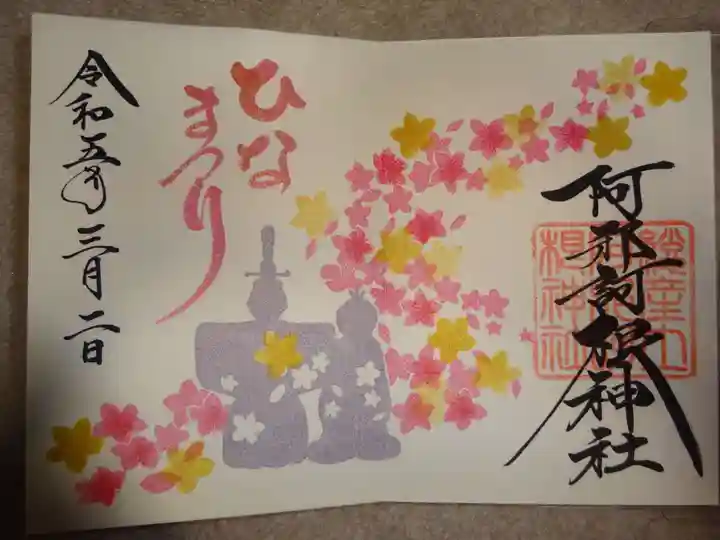 阿邪訶根神社
ひな
まつり
令和五年三月二日